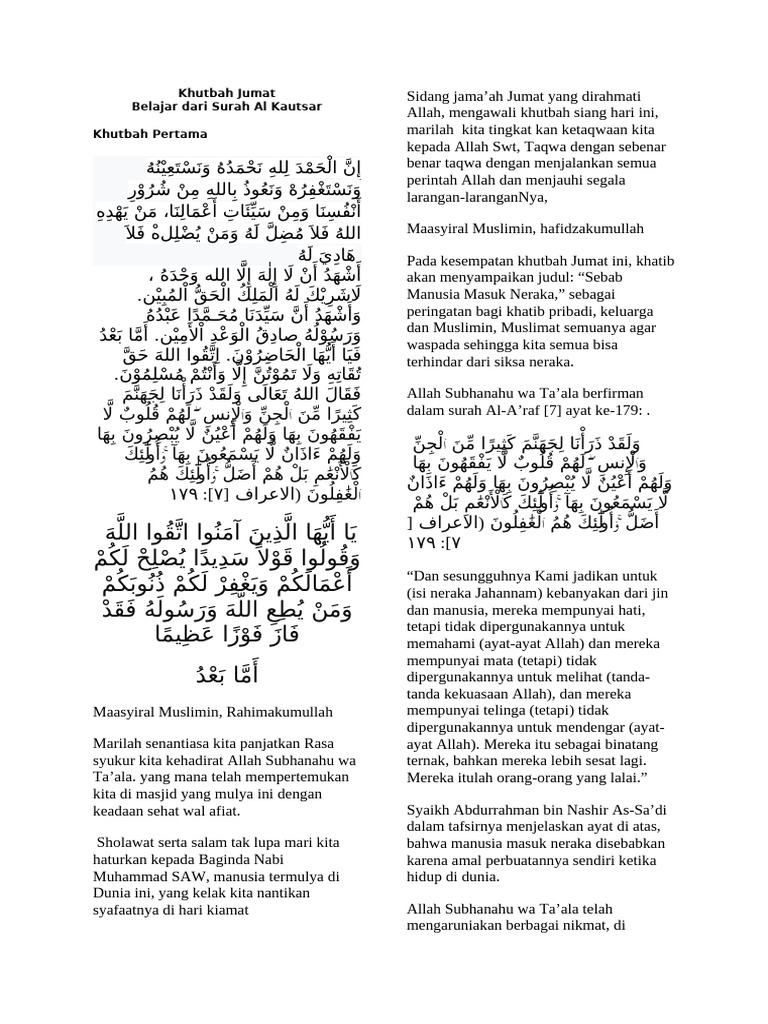 Khutbah Jumat
Belajar dari Surah Al Kautsar
Khutbah Pertama
إِنَّ الْحَمْدَ لِلهِ نَحْمَدُهُ وَنَسْتَعِيْنُهُ
وَنَسْتَغْفِرُهْ وَنَعُوذُ بِاللهِ مِنْ شُرُوْرِ
أَنْفُسِنَا وَمِنْ سَيِّئَاتِ أَعْمَالِنَا، مَنْ يَهْدِهِ
اللهُ فَلاَ مُضِلَّ لَهُ وَمَنْ يُضْلِلْهْ فَلاَ
هَادِيَ لَهُ
أَشْهَدُ أَنْ لَا إِلٰهَ إِلَّا الله وَحْدَهُ ،
لَاشَرِيْكَ لَهُ اَلْمَلِكُ الْحَقُّ الْمُبِيْن.
وَأَشْهَدُ أَنَّ سَيِّدَنَا مُحَـمَّدًا عَبْدُهُ
وَرَسُوْلُهُ صادِقُ الْوَعْدِ الْأَمِيْن. أَمَّا بَعْدُ
فَيَا أَيُّهَا الْحَاضِرُوْنَ. اِتَّقُوا اللهَ حَقَّ
تُقَاتِهِ وَلَا تَمُوْتُنَّ إِلَّا وَأَنْتُمْ مُسْلِمُوْنَ.
فَقَالَ اللهُ تَعَالَى وَلَقَدْ ذَرَأْنَا لِجَهَنَّمَ
كَثِيرًا مِّنَ ٱلْجِنِّ وَٱلْإِنسِ ۖ لَهُمْ قُلُوبٌ لَّا
يَفْقَهُونَ بِهَا وَلَهُمْ أَعْيُنٌ لَّا يُبْصِرُونَ بِهَا
وَلَهُمْ ءَاذَانٌ لَّا يَسْمَعُونَ بِهَآ ۚ أُو۟لَٰٓئِكَ
كَٱلْأَنْعَٰمِ بَلْ هُمْ أَضَلُّ ۚ أُو۟لَٰٓئِكَ هُمُ
ٱلْغَٰفِلُونَ (الاعراف [٧]: ١٧٩
يَا أَيُّهَا الَّذِينَ آمَنُوا اتَّقُوا اللَّهَ
وَقُولُوا قَوْلاً سَدِيدًا يُصْلِحْ لَكُمْ
أَعْمَالَكُمْ وَيَغْفِرْ لَكُمْ ذُنُوبَكُمْ
وَمَنْ يُطِعِ اللَّهَ وَرَسُولَهُ فَقَدْ
فَازَ فَوْزًا عَظِيمًا
أَمَّا بَعْدُ
Maasyiral Muslimin, Rahimakumullah
Marilah senantiasa kita panjatkan Rasa
syukur kita kehadirat Allah Subhanahu wa
Ta’ala. yang mana telah mempertemukan
kita di masjid yang mulya ini dengan
keadaan sehat wal afiat.
Sholawat serta salam tak lupa mari kita
haturkan kepada Baginda Nabi
Muhammad SAW, manusia termulya di
Dunia ini, yang kelak kita nantikan
syafaatnya di hari kiamat
Sidang jama’ah Jumat yang dirahmati
Allah, mengawali khutbah siang hari ini,
marilah  kita tingkat kan ketaqwaan kita
kepada Allah Swt, Taqwa dengan sebenar
benar taqwa dengan menjalankan semua
perintah Allah dan menjauhi segala
larangan-laranganNya,
Maasyiral Muslimin, hafidzakumullah
Pada kesempatan khutbah Jumat ini, khatib
akan menyampaikan judul: “Sebab
Manusia Masuk Neraka,” sebagai
peringatan bagi khatib pribadi, keluarga
dan Muslimin, Muslimat semuanya agar
waspada sehingga kita semua bisa
terhindar dari siksa neraka.
Allah Subhanahu wa Ta’ala berfirman
dalam surah Al-A’raf [7] ayat ke-179: .
وَلَقَدْ ذَرَأْنَا لِجَهَنَّمَ كَثِيرًا مِّنَ ٱلْجِنِّ
وَٱلْإِنسِ ۖ لَهُمْ قُلُوبٌ لَّا يَفْقَهُونَ بِهَا
وَلَهُمْ أَعْيُنٌ لَّا يُبْصِرُونَ بِهَا وَلَهُمْ ءَاذَانٌ
لَّا يَسْمَعُونَ بِهَآ ۚ أُو۟لَٰٓئِكَ كَٱلْأَنْعَٰمِ بَلْ هُمْ
أَضَلُّ ۚ أُو۟لَٰٓئِكَ هُمُ ٱلْغَٰفِلُونَ (الاعراف [
٧]: ١٧٩
“Dan sesungguhnya Kami jadikan untuk
(isi neraka Jahannam) kebanyakan dari jin
dan manusia, mereka mempunyai hati,
tetapi tidak dipergunakannya untuk
memahami (ayat-ayat Allah) dan mereka
mempunyai mata (tetapi) tidak
dipergunakannya untuk melihat (tanda-
tanda kekuasaan Allah), dan mereka
mempunyai telinga (tetapi) tidak
dipergunakannya untuk mendengar (ayat-
ayat Allah). Mereka itu sebagai binatang
ternak, bahkan mereka lebih sesat lagi.
Mereka itulah orang-orang yang lalai.”
Syaikh Abdurrahman bin Nashir As-Sa’di
dalam tafsirnya menjelaskan ayat di atas,
bahwa manusia masuk neraka disebabkan
karena amal perbuatannya sendiri ketika
hidup di dunia.
Allah Subhanahu wa Ta’ala telah
mengaruniakan berbagai nikmat, di